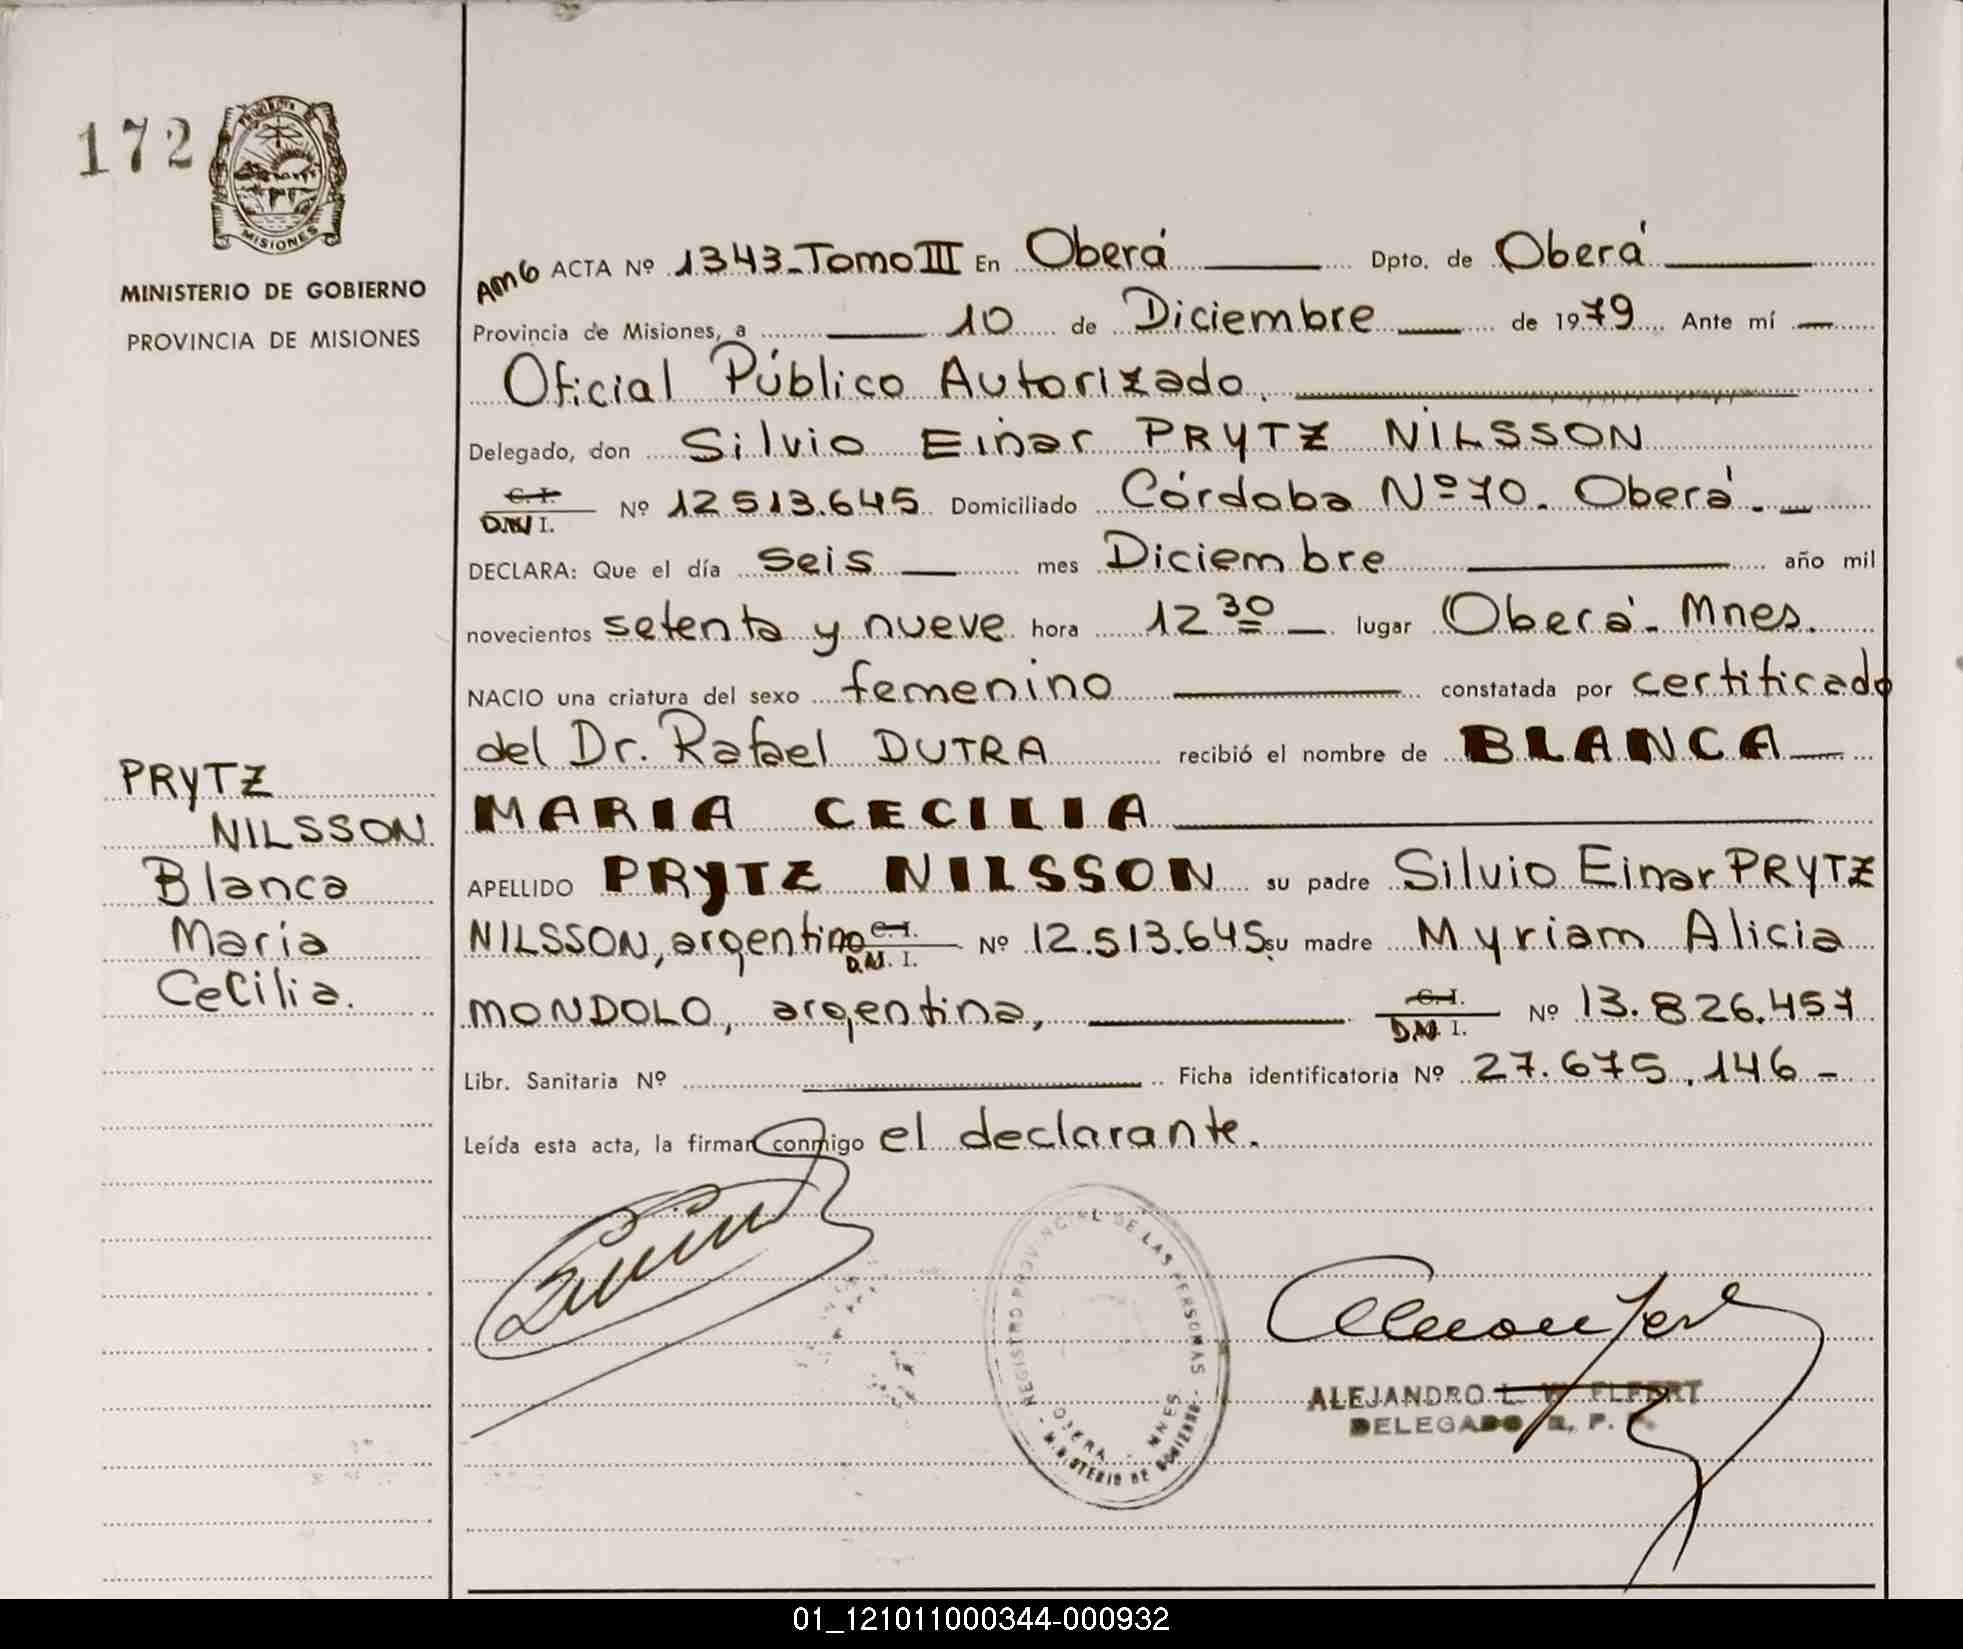 172
PROVINCIA
MISIONES
MINISTERIO DE GOBIERNO
PROVINCIA DE MISIONES
PRYTZ
NILSSON
Blanca
Maria
Cecilia.
AMG ACTA Nº 1343-Tomo III En Oberá Dpto. de Oberá
Provincia de Misiones, a 10 de Diciembre de 1979 Ante mí
Oficial Público Autorizado.
Delegado, don Silvio Einar PRYTZ NILSSON
C. I.
D.N I. Nº 12.513.645 Domiciliado Córdoba Nº 70. Oberá.
DECLARA: Que el día seis mes Diciembre año mil
novecientos setenta y nueve hora 12 30 lugar Oberá - Mnes.
NACIO una criatura del sexo femenino constatada por certificado
del Dr. Rafael DUTRA recibió el nombre de BLANCA
MARIA CECILIA
APELLIDO PRYTZ NILSSON su padre Silvio Einar PRYTZ
NILSSON, argentino C. I. D.N. I. Nº 12.513.645 su madre Myriam Alicia
MONDOLO, argentina, C. I. D.N. I. Nº 13.826.457
Libr. Sanitaria Nº Ficha identificatoria Nº 27.675.146 -
Leída esta acta, la firman conmigo el declarante.
REGISTRO PROVINCIAL DE LAS PERSONAS
OBERA - MNES
MINISTERIO DE GOBIERNO
ALEJANDRO L. W. ELFERT
DELEGADO R. P.
01_121011000344-000932